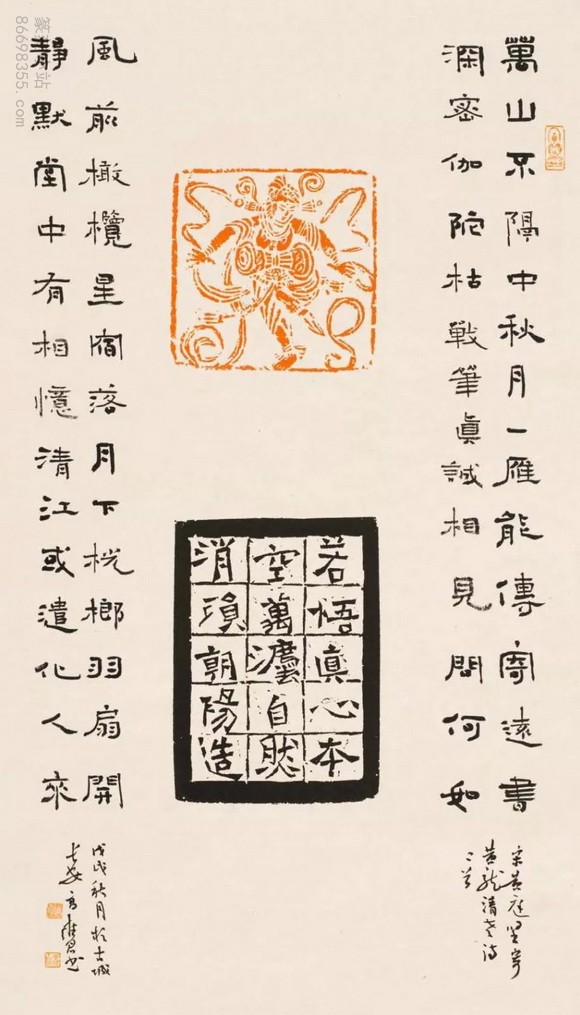 萬山不隔中秋月一雁能傳寄遠書
深密伽陀枯戰筆眞誠相見問何如
宋黃庭堅寄
黃龍清老詩
二首
若悟真心本
空萬灋自然
消朝陽造
風前橄欖星宿落月下桄榔羽扇開
靜默堂中有相憶清江或遣化人來
戊戌秋月於古城
長安高書
篆站
86698355.com